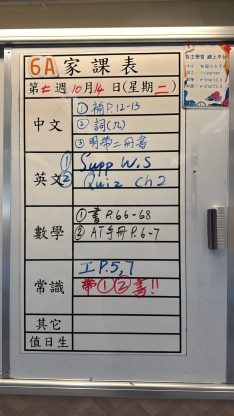 6A 家課表
第七週 10月14日(星期二)
中文
① 補P.12-13
② 詞(九)
③ 明帶二冊書
英文
① Supp W.S
② Quiz ch2
數學
① 書 P.66-68
② AT手冊 P.6-7
常識
工P.5,7
帶①②書!!
其它
值日生
自主學習 網上平台